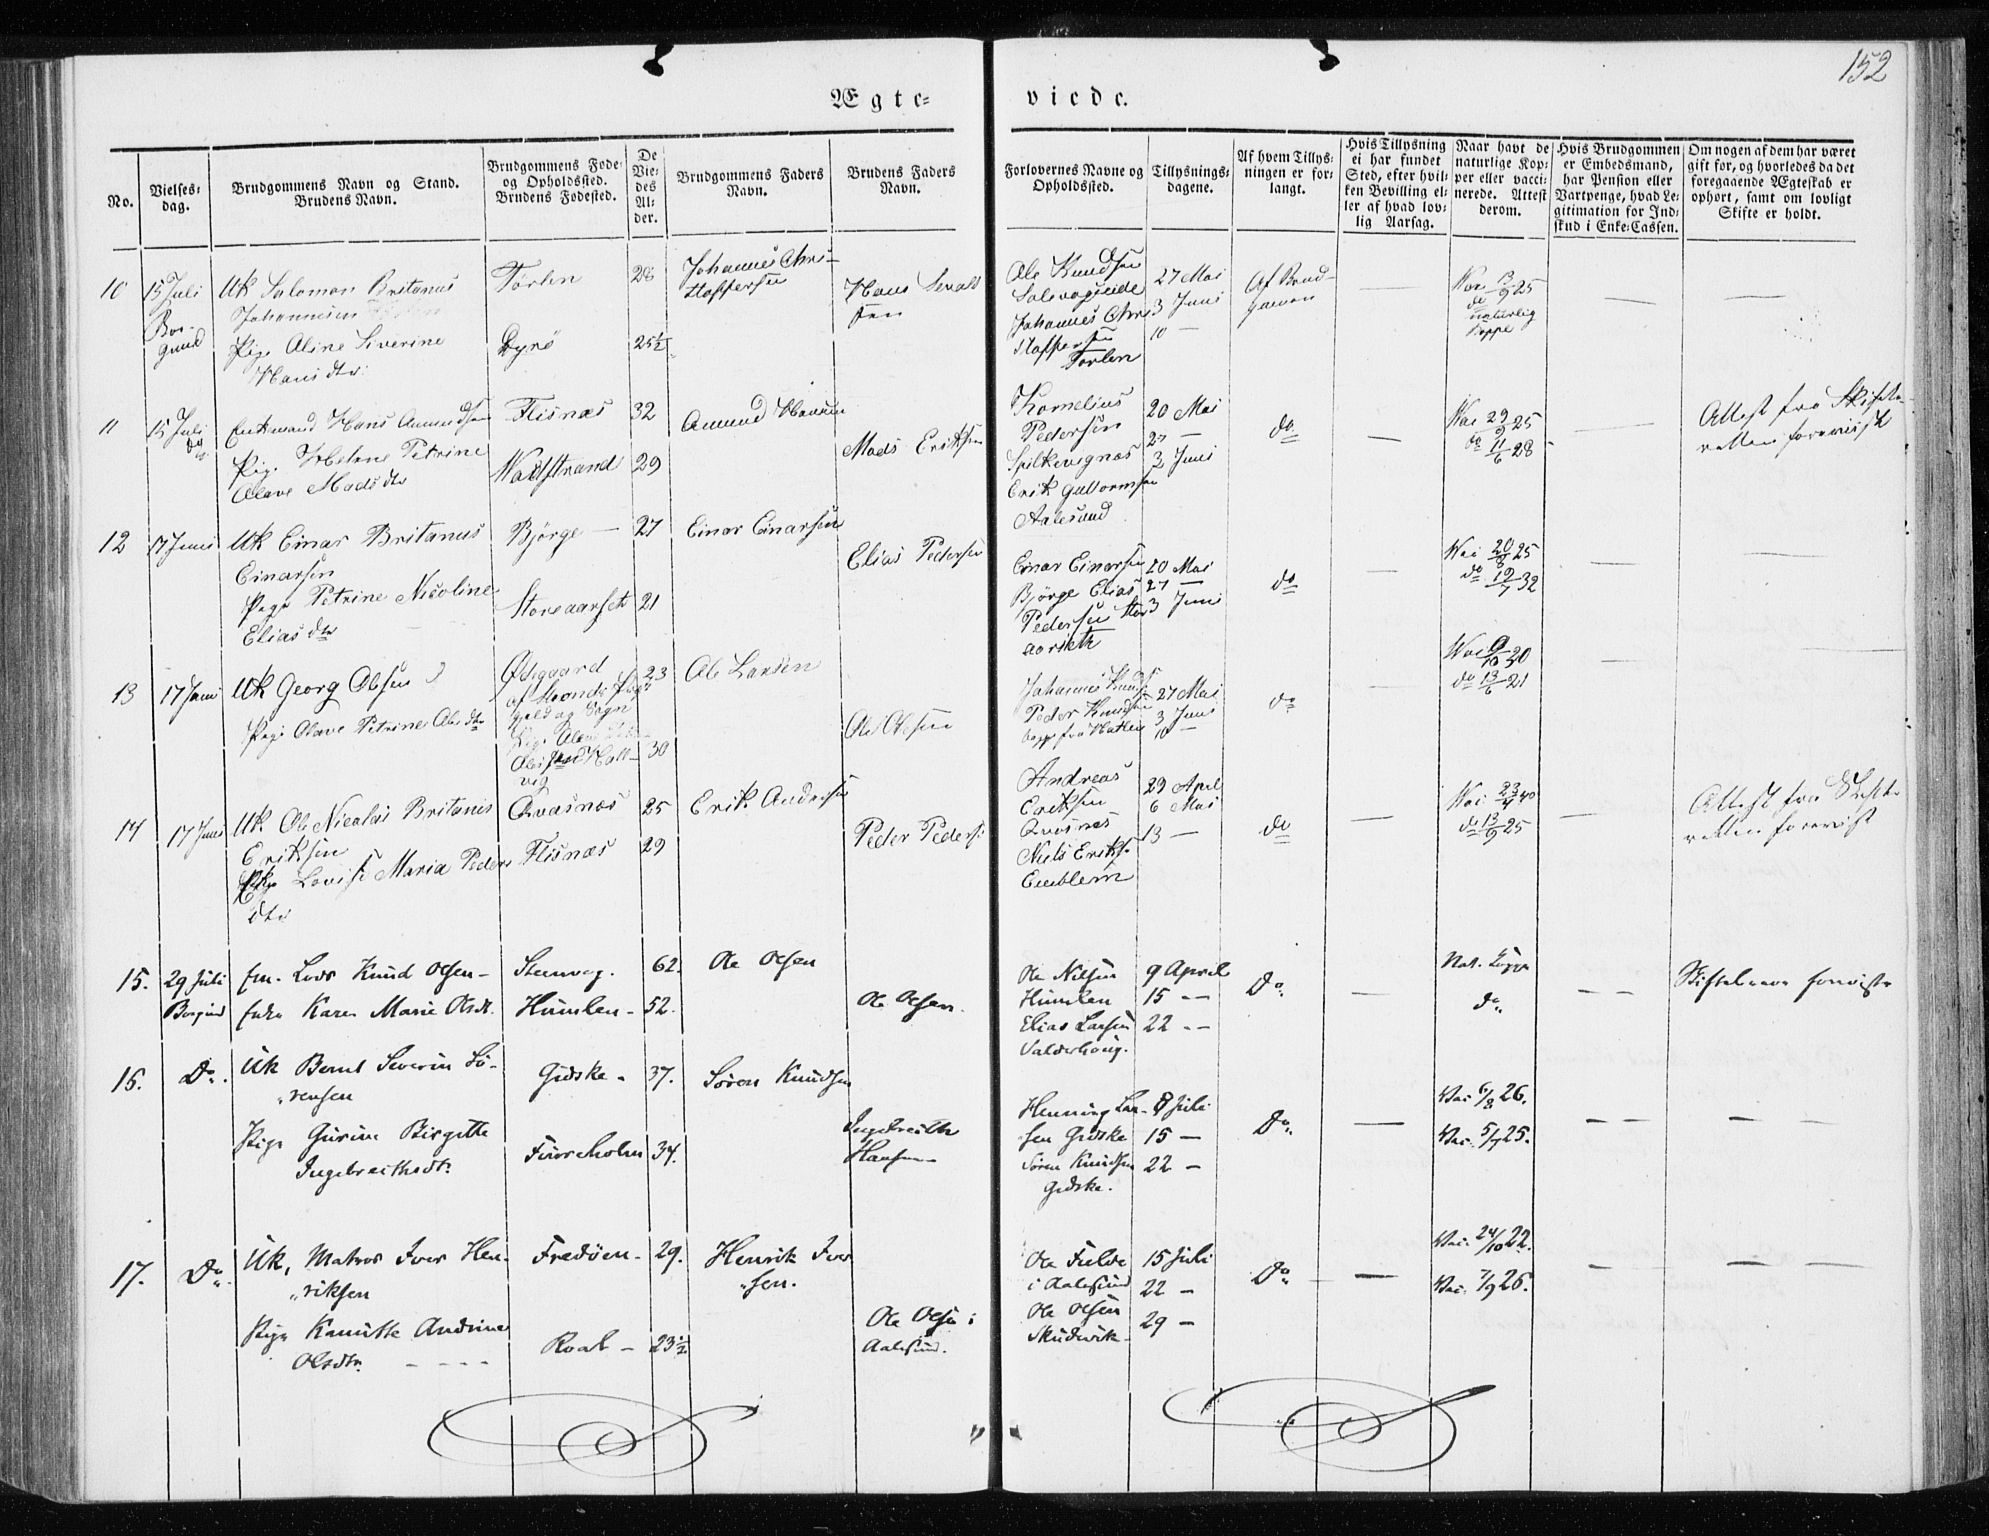 152
Ægte=
viede.
No.
Vielses=
dag.
Brudgommens Navn og Stand.
Brudens Navn.
Brudgommens Føde=
og Opholdssted.
Brudens Fødested.
De
Vie=
des
Al=
der.
Brudgommens Faders
Navn.
Brudens Faders
Navn.
Forlovernes Navne og
Opholdssted.
Tillysnings=
dagene.
Af hvem Tillys=
ningen er for=
langt.
Hvis Tillysning
ei har fundet
Sted, efter hvil=
ken Bevilling el=
ler af hvad lov=
lig Aarsag.
Naar havt de
naturlige Kop=
per eller vacci=
nerede. Attest
derom.
Hvis Brudgommen
er Embedsmand,
har Pension eller
Vartpenge, hvad Le=
gitimation for Ind=
skud i Enke=Cassen.
Om nogen af dem har været
gift før, og hvorledes da det
foregaaende Ægteskab er
ophørt, samt om lovligt
Skifte er holdt.
10
15 Juli
Bor-
gund
Uk Salomon Britanus
Johannesen
Pige Aline Severine
Hansdtr
Tørlen
Dyrø
28
25½
Johannes Chri-
stoffersen
Hans
sen
Ole Knudsen
Solevogseide
Johannes Chri
stoffersen
Tørlen
27 Mai
3 Juni
10 —
Af Brud-
gomen
Vac 13/9 25
do
naturlig
Koppe
11
15 Juli
do
Enkmand Hans Amundsen
Pige Helene Petrine
Olave Madsdtr
Flisnæs
Waldstrand
32
29
Amund Hansen
Mads Eriksen
Kornelius
Pedersen
Spilkevignæs
Erik Guttormsen
Aalesund
20 Mai
27 —
3 Juni
do
Vac 29/9 25
do 11/6 28
Attest fra Skifte-
retten forevist
12
17 Juni
Uk Einar Britanus
Einarsen
Pige Petrine Nicoline
Eliasdtr
Bjørge —
Storeaarseth
27
21
Einar Einarsen
Elias Pedersen
Einar Einarsen
Bjørge Elias
Pedersen Stor
aarseth
20 Mai
27 —
3 Juni
do
Vac 20/8 25
do 19/7 32
13
17 Juni
Uk Georg Olsen
Pige Olave Petrine Olsdtr
Ødegaard
af Strands Præst
gjeld og Sogn
vig
23
30
Ole Larsen
Ole Olsen
Johannes
Peder Knudsen
begge fra Hatlen
27 Mai
3 Juni
10 —
do
Vac 9/10 20
do 13/6 21
14
17 Juni
Uk. Ole Nicolai Britanus
Eriksen
Pige Lovise Maria Peders
dtr
Qvasnæs
Flisnæs
25
29
Erik Andersen
Peder Peders
Andreas
Eriksen
Qvasnæs
Niels Eriks
Emblem
29 April
6 Mai
13 —
do
Vac 23/4 40
do 13/9 25
Attest fra Skifte
retten forevist
15.
29 Juli
Borgund
Em. Lods Knud Olsen —
Enke Karen Marie Olsdt.
Stenvog.
Humlen —
62.
52.
Ole Olsen
Ole Olsen.
Ole Nilsen
Humlen
Elias Larsen
Valderhoug.
9 April
15 —
22 —
Do.
Nat. Kopp
do.
Skiftebrev forevist
16.
Do.
Uk Bernt Severin Sø-
rensen
Pige Gurine Birgitte
Ingebrecthsdt.
Gidske —
Furreholm
37.
34.
Søren Knudsen
Ingebrecth
Hansen —
Henning Lar-
sen Gidske
Søren Knudsen
Gidske.
8 Juli
15 —
22 —
Do.
Vac 6/8 26.
Vac. 5/9 25.
17.
Do.
Uk, Matros Iver Hen-
riksen
Pige Kanutte Andrine
Olsdtr. — — —
Fredøen —
Roal —
29.
23½
Henrik Iver
sen.
Ole Olsen i
Aalesund.
Ole Fulde
i Aalesund
Ole Olsen
Skudevik
15 Juli
22 —
29 —
Do.
Vac. 24/10 22.
Vac. 7/9 26.